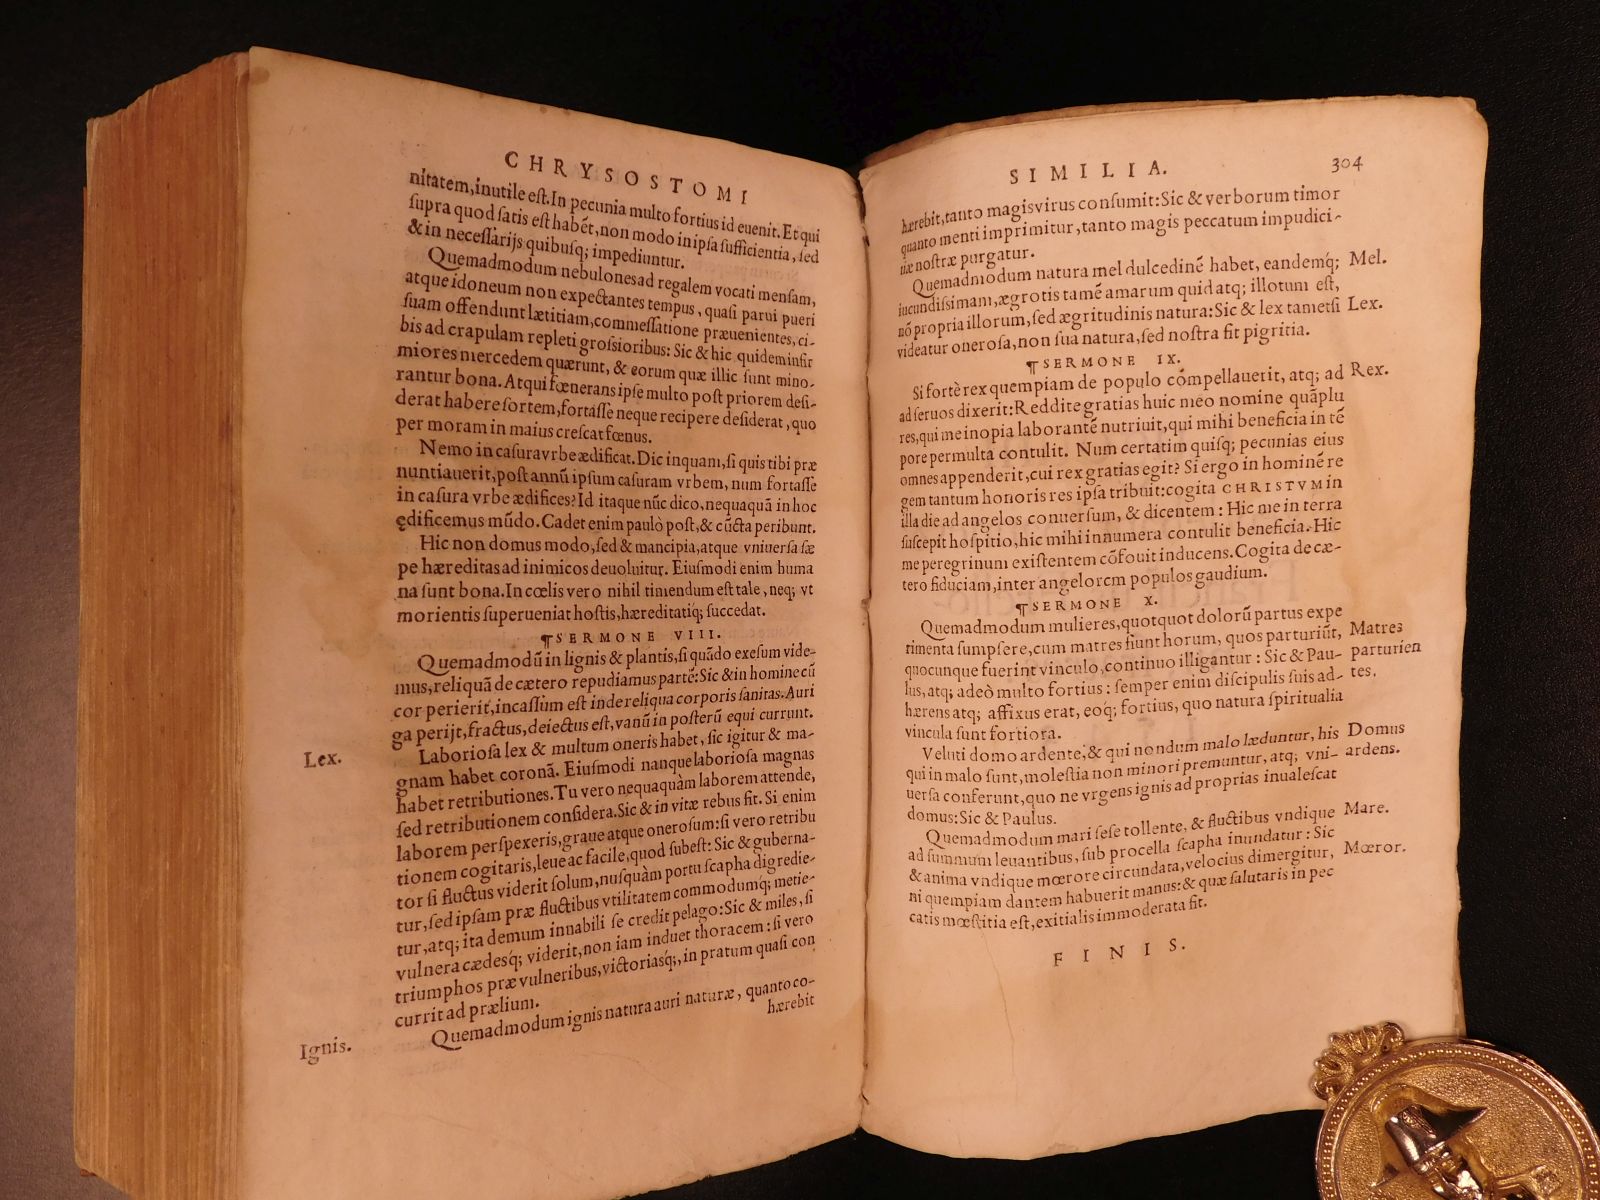 CHRYSOSTOMI
nitatem, inutile est. In pecunia multo fortius id euenit. Et qui
supra quod satis est habēt, non modo in ipsa sufficientia, sed
& in necessarijs quibusq; impediuntur.
Quemadmodum nebulones ad regalem vocati mensam,
atque idoneum non expectantes tempus, quasi parui pueri
suam offendunt lætitiam, commessatione præuenientes, ci-
bis ad crapulam repleti grossioribus: Sic & hic quidem infir
miores mercedem quærunt, & eorum quæ illic sunt mino-
rantur bona. Atqui fœnerans ipse multo post priorem desi-
derat habere sortem, fortasse neque recipere desiderat, quo
per moram in maius crescat fœnus.
Nemo in casura vrbe ædificat. Dic inquam, si quis tibi præ
nuntiauerit, post annū ipsum casuram vrbem, num fortasse
in casura vrbe ædifices? Id itaque nūc dico, nequaquā in hoc
ędificemus mūdo. Cadet enim paulò post, & cūcta peribunt.
Hic non domus modo, sed & mancipia, atque vniuersa sæ
pe hæreditas ad inimicos deuoluitur. Eiusmodi enim huma
na sunt bona. In cœlis vero nihil timendum est tale, neq; vt
morientis superueniat hostis, hæreditatiq; succedat.
¶SERMONE VIII.
Quemadmodū in lignis & plantis, si quādo exesum vide-
mus, reliquā de cætero repudiamus partē: Sic & in homine cū
cor perierit, incassum est inde reliqua corporis sanitas. Auri
ga perijt, fractus, deiectus est, vanū in posterū equi currunt.
Lex. Laboriosa lex & multum oneris habet, sic igitur & ma-
gnam habet coronā. Eiusmodi nanque laboriosa magnas
habet retributiones. Tu vero nequaquàm laborem attende,
sed retributionem considera. Sic & in vitæ rebus fit. Si enim
laborem perspexeris, graue atque onerosum: si vero retribu
tionem cogitaris, leue ac facile, quod subest: Sic & guberna-
tor si fluctus viderit solum, nusquàm portu scapha digredie-
tur, sed ipsam præ fluctibus vtilitatem commodumq; metie-
tur, atq; ita demum innabili se credit pelago: Sic & miles, si
vulnera cædesq; viderit, non iam induet thoracem: si vero
triumphos præ vulneribus, victoriasq;, in pratum quasi con
currit ad prælium.
Ignis. Quemadmodum ignis natura auri naturæ, quanto co-
hærebit
SIMILIA. 304
hærebit, tanto magis virus consumit: Sic & verborum timor
quanto menti imprimitur, tanto magis peccatum impudici-
tiæ nostræ purgatur.
Quemadmodum natura mel dulcedinē habet, eandemq; Mel.
iucundissimam, ægrotis tamē amarum quid atq; illotum est,
nō propria illorum, sed ægritudinis natura: Sic & lex tametsi Lex.
videatur onerosa, non sua natura, sed nostra fit pigritia.
¶SERMONE IX.
Si fortè rex quempiam de populo compellauerit, atq; ad Rex.
ad seruos dixerit: Reddite gratias huic meo nomine quāplu
res, qui me inopia laborantē nutriuit, qui mihi beneficia in tē
pore permulta contulit. Num certatim quisq; pecunias eius
omnes appenderit, cui rex gratias egit? Si ergo in hominē re
gem tantum honoris res ipsa tribuit: cogita CHRISTVM in
illa die ad angelos conuersum, & dicentem: Hic me in terra
suscepit hospitio, hic mihi innumera contulit beneficia. Hic
me peregrinum existentem cōfouit inducens. Cogita de cæ-
tero fiduciam, inter angelorem populos gaudium.
¶SERMONE X.
Quemadmodum mulieres, quotquot dolorū partus expe
rimenta sumpsere, cum matres fiunt horum, quos parturiūt, Matres
quocunque fuerint vinculo, continuo illigantur: Sic & Pau- parturien
lus, atq; adeò multo fortius: semper enim discipulis suis ad- tes.
hærens atq; affixus erat, eoq; fortius, quo natura spiritualia
vincula sunt fortiora.
Veluti domo ardente, & qui nondum malo læduntur, his Domus
qui in malo sunt, molestia non minori premuntur, atq; vni- ardens.
uersa conferunt, quo ne vrgens ignis ad proprias inualescat
domus: Sic & Paulus.
Quemadmodum mari sese tollente, & fluctibus vndique Mare.
ad summum leuantibus, sub procella scapha inundatur: Sic
& anima vndique mœrore circundata, velocius dimergitur, Mœror.
ni quempiam dantem habuerit manus: & quæ salutaris in pec
catis mœstitia est, exitialis immoderata fit.
FINIS.